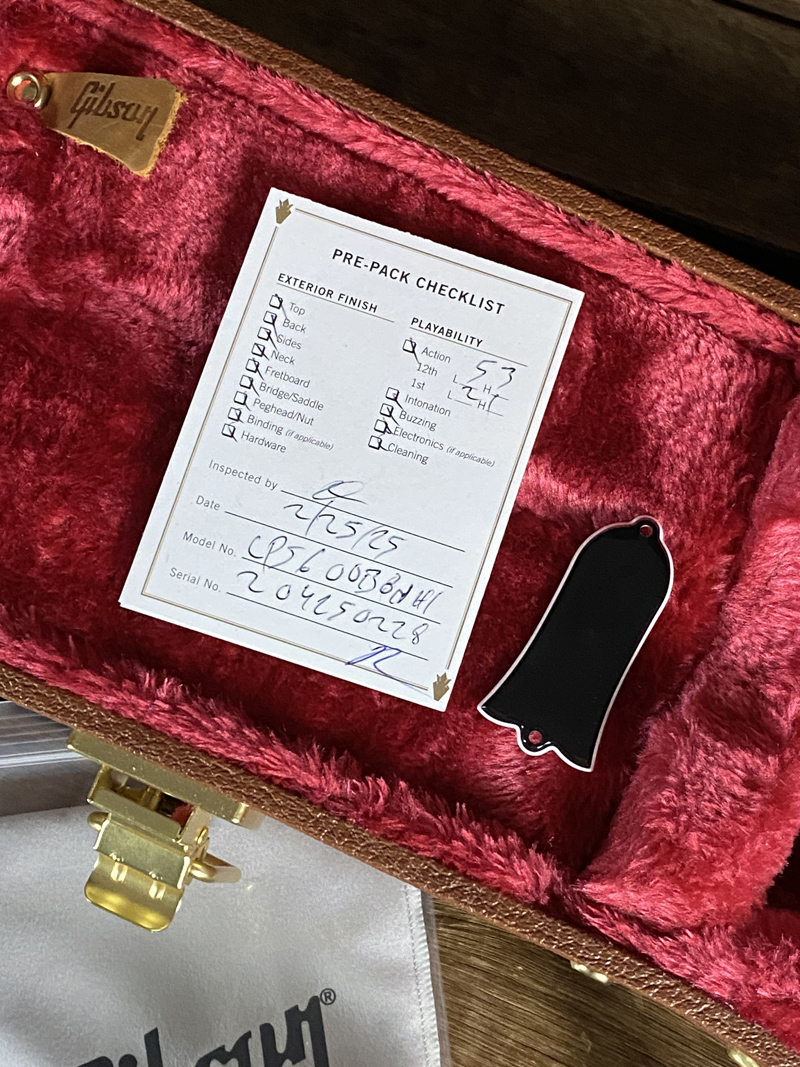 Gibson
PRE-PACK CHECKLIST
EXTERIOR FINISH
Top
Back
Sides
Neck
Fretboard
Bridge/Saddle
Peghead/Nut
Binding (if applicable)
Hardware
PLAYABILITY
Action
12th L 5 H 3
1st L 2 H 1
Intonation
Buzzing
Electronics (if applicable)
Cleaning
Inspected by
Date 2/25/25
Model No. LPS600B8NH1
Serial No. 204250228
Gibson®